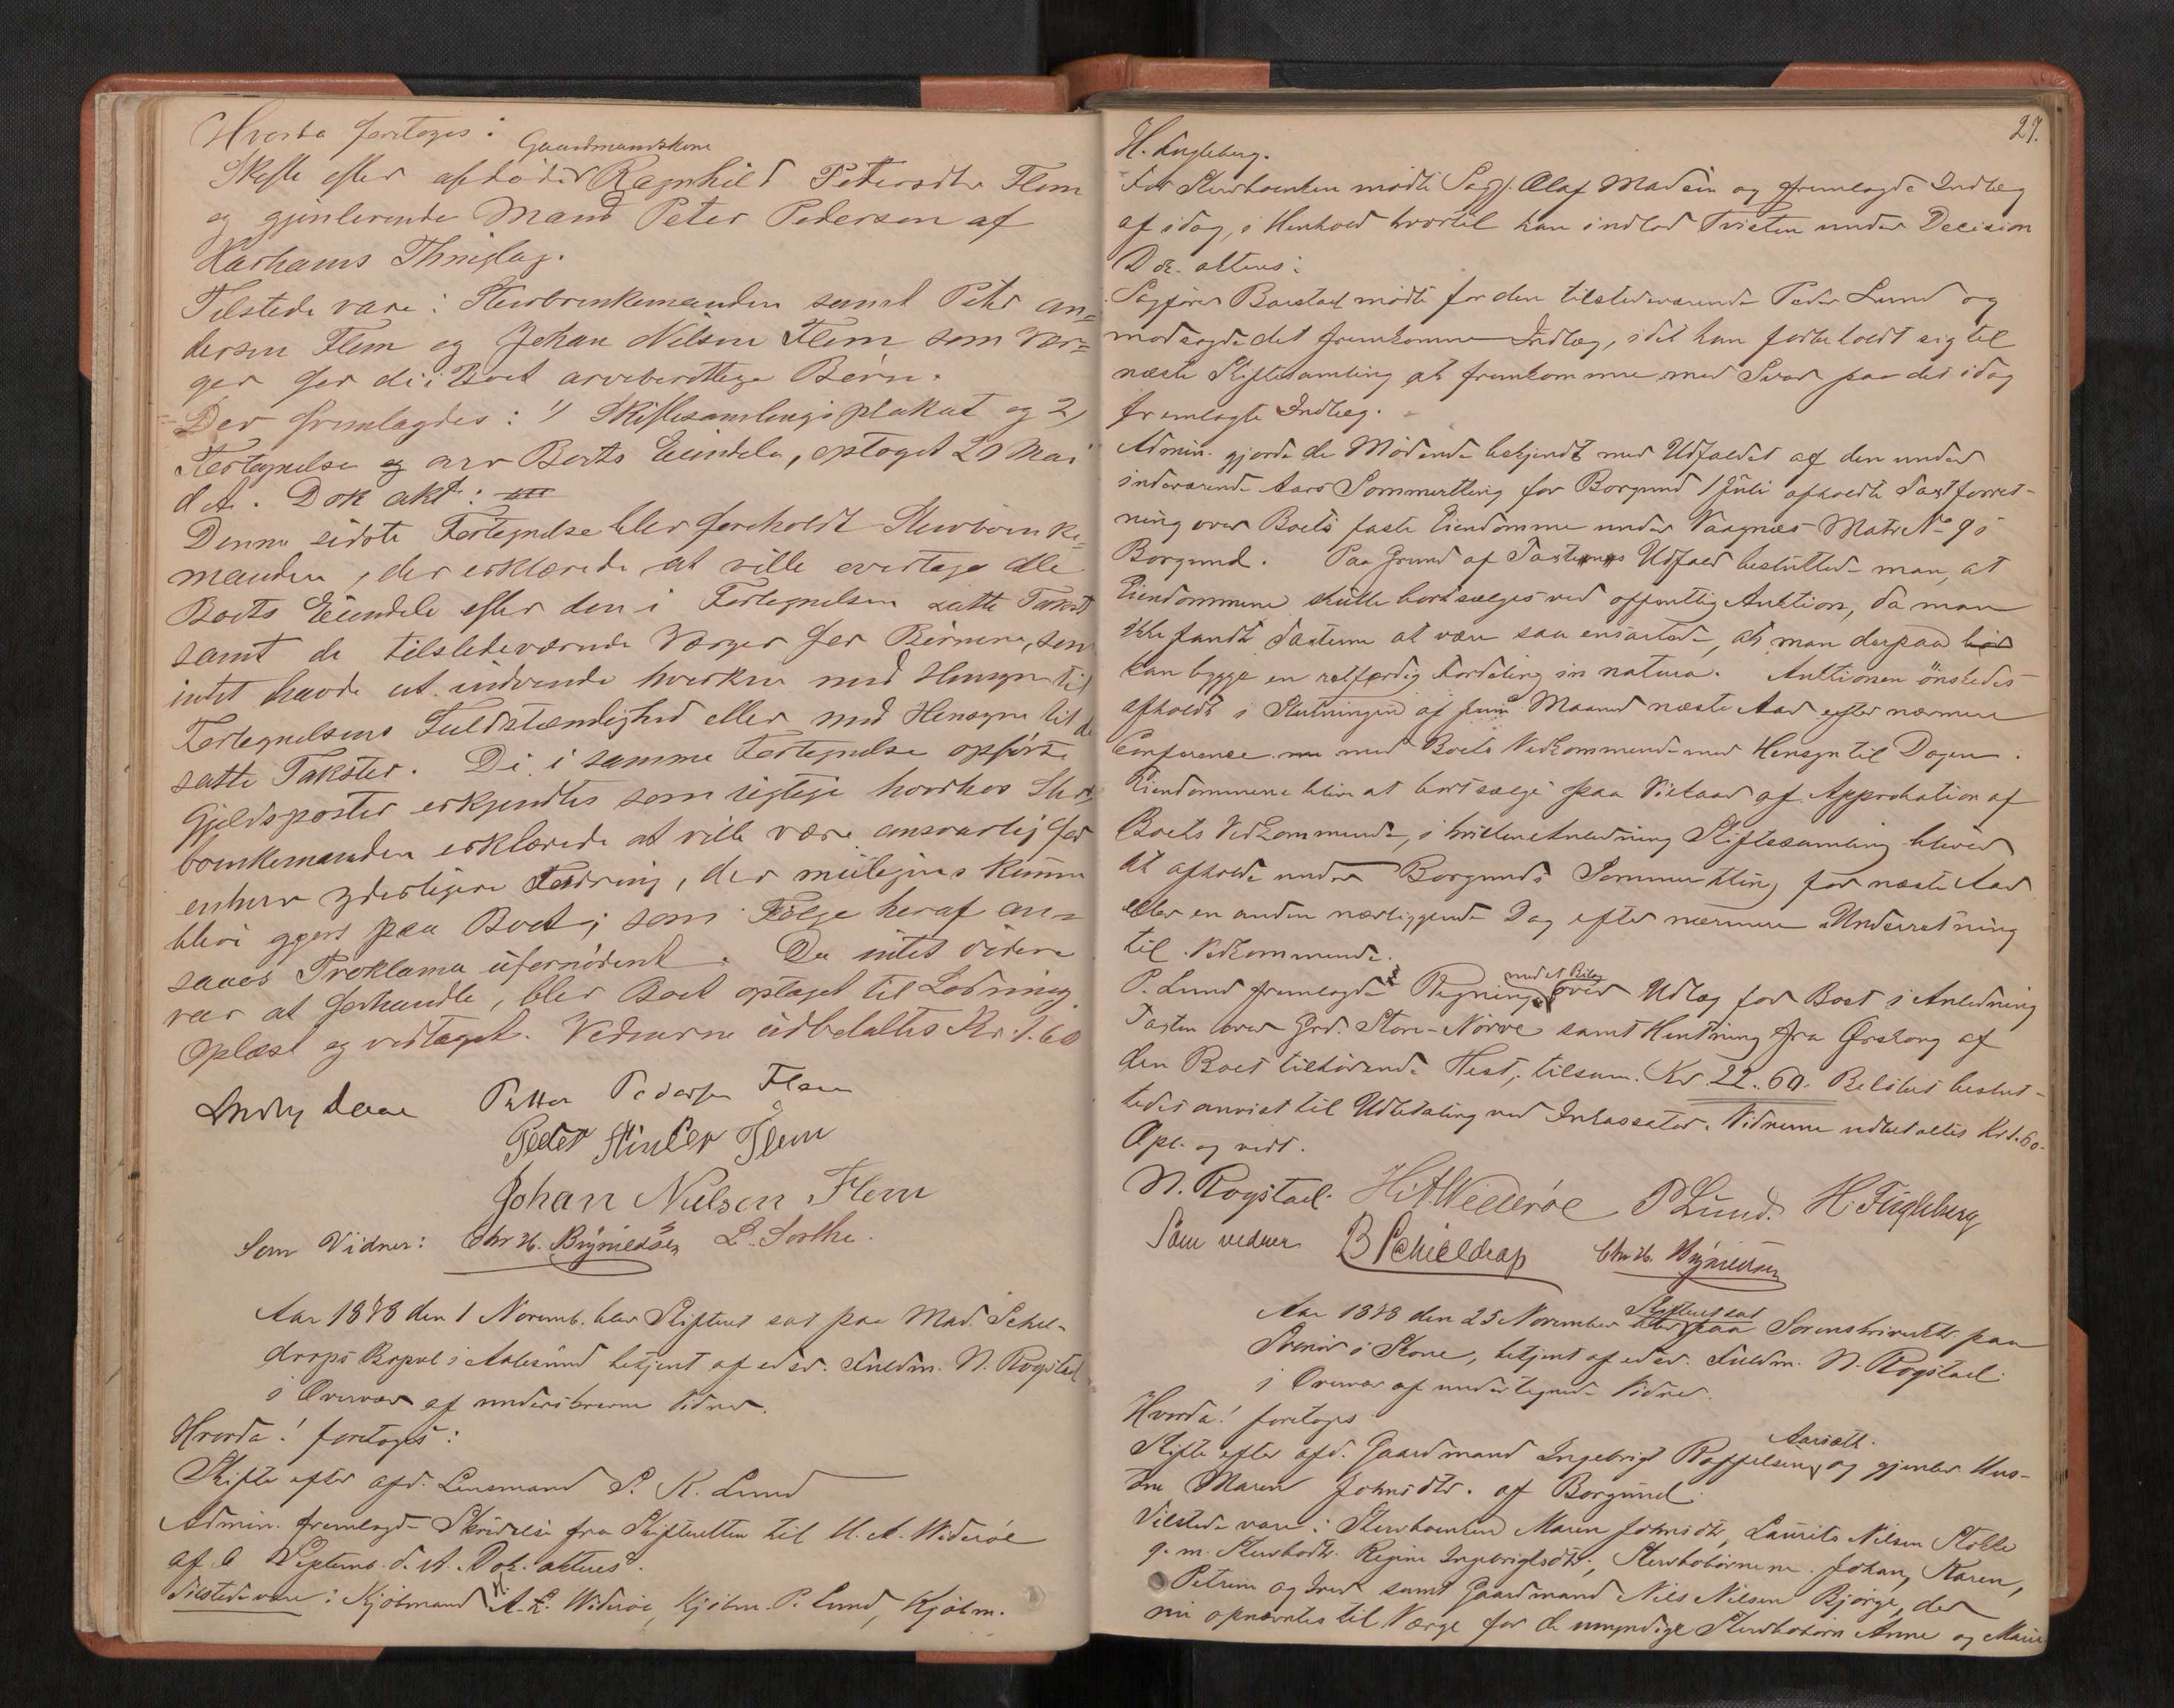 Hvorda foretoges:
Skifte efter afdøde Gaardmandskone Ragnhild Petersdtr Flem
og gjenlevende Mand Peter Pedersen af
Harhams Thinglag.
Tilstede vare: Stervboenkemanden samt Peter An=
dersen Flem og Johan Nilsen Flem som Vær=
ger for de i Boet arveberettigede Børn.
Der fremlagdes: 1) Skiftesamlingsplakat og 2)
Fortegnelse over Boets Eiendele, optaget 20 Mai
d. A. Dok akt:
Denne sidste Fortegnelse blev foreholdt Stervboenke=
manden, der erklærede at ville overtage alle
Boets Eiendele efter den i Fortegnelsen satte Takst
samt de tilstedeværende Værger for Børnene, som
intet havde at indvende hverken med Hensyn til
Fortegnelsens Fuldstændighed eller med Hensyn til de
satte Takster. De i samme Fortegnelse opførte
Gjeldsposter erkjendtes som rigtige hvorhos Sterv=
boenkemanden erklærede at ville være ansvarlig for
enhver yderligere Fordring, der muligens kunne
blive gjort paa Boet; som Følge heraf an=
saaes Proklama ufornödent. Da intet videre
var at forhandle, blev Boet optaget til Lodning.
Oplæst og vedtaget. Vidnerne udbetaltes Kr. 1.60
Petter Pedersen Flem
Peder Flem
Johan Nielsen Flem
Som Vidner: Chr H. Brynildsen
Aar 1878 den 1 Novemb. blev Skifteret sat paa Mad. Schel-
drops Bopæl i Aalesund betjent af edsv. Fuldm. N. Rogstad
i Overvær af underskrevne Vidner.
Hvorda! foretoges:
Skifte efter afd. Lensmand P. K. Lund
Admin. fremlagde Skrivelse fra Skifteretten til H. A. Widerøe
af Septemb. d. A. Dok. altsus.
Tilstede vare: Kjöbmand H. A. Widerøe, Kjöbm. P. Lund, Kjöbm.
27.
H. Fugleberg.
For Stervboenken mödte Sagf. Olaf Madsen og fremlagde Indlæg
af idag, i Henhold hvortil han indlod Tvisten under Decision
Dok. altsus:
Sagfører Barstad mödte for den tilstedeværende Peder Lund og
modsagde det fremkomne Indlæg, idet han forbeholdt sig til
næste Skiftesamling at fremkomme med Svar paa det idag
fremlagte Indlæg.
Admin. gjorde de Mödende bekjendt med Udfaldet af den under
indeværende Aars Sommerthing for Borgund 1 Juli afholdte Taxtforret-
ning over Boets faste Eiendomme under Vaagnæs Matr No 9 i
Borgund. Paa Grund af Taxternes Udfald besluttede man, at
Eiendommene skulle bortsælges ved offentlig Auktion, da man
ikke fandt Taxterne at være saa ensartede, at man derpaa
kan bygge en retfærdig Fordeling in natura. Auktionen önskedes
afholdt i Slutningen af Juni Maaned næste Aar efter nærmere
Conference med Boets Vedkommende med Hensyn til Dagen.
Eiendommene blive at bortsælge paa Vilkaar af Approbation af
Boets Vedkommende, i hvilken Anledning Skiftesamling bliver
at afholde under Borgunds Sommerthing for næste Aar
eller en anden nærliggende Dag efter nærmere Underretning
til Vedkommende.
P. Lund fremlagde Regning med et Bilag over Udlæg for Boet i Anledning
Taxten over Grd. Store-Nörve samt Hentning fra Ørskog af
den Boet tilhörende Hest, tilsam. Kr 22.60. Belöbet beslut-
tedes anvist til Udbetaling ved Inkassator. Vidnerne udbetaltes Kr 1.60.
Opl. og vedt.
N. Rogstad. H. A. Widerøe P Lund. H. Fugleberg
Som vidner B Scheldrop Chr H. Brynildsen
Aar 1878 den 25 November blev Skifteret sat paa Sorenskrivergaarden
i Stone, betjent af edsv. Fuldm. N. Rogstad
i Overvær af undertegnede Vidner.
Hvorda! foretoges
Skifte efter afd. Gaardmand Ingebrigt Raffelsen Aarseth. og gjenlev. Hus-
tru Maren Johnsdtr. af Borgund.
Tilstede vare: Stervboenken Maren Johnsdtr, Laurits Nilsen Stokke
g. m. Stervbodtr. Regine Ingebrigtsdtr, Stervbobörnene Johan, Karen,
Petrine og Iver samt Gaardmand Nils Nilsen Bjorge, der
nu opnævntes til Værge for de umyndige Stervbobörn Anne og Marie